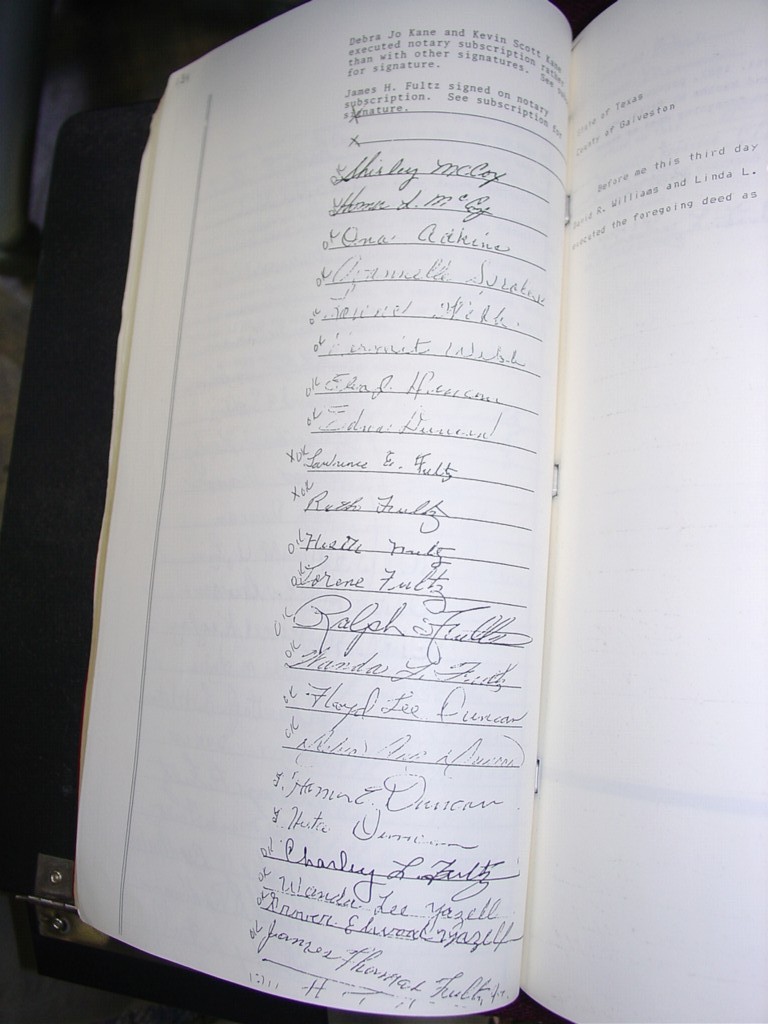 Debra Jo Kane and Kevin Scott Kane
executed notary subscription rather
than with other signatures. See
for signature.
James H. Fultz signed on notary
subscription. See subscription for
signature.
X
X
ok Shirley McCoy
ok Homer L. McCoy
ok Ona Adkins
ok
ok Webb
ok Kermit Webb
ok Duncan
ok Edna Duncan
X ok Lawrence E. Fultz
X ok Ruth Fultz
ok Fultz
ok Lorene Fultz
ok Ralph Fultz
ok Wanda L. Fultz
ok Floyd Lee Duncan
ok Duncan
Homer E. Duncan
Duncan
ok Charley L. Fultz
ok Wanda Lee Yazell
ok Grover Elwood Yazell
ok James Thomas Fultz, Jr.
State of Texas
County of Galveston
Before me this third day
David R. Williams and Linda L.
executed the foregoing deed as